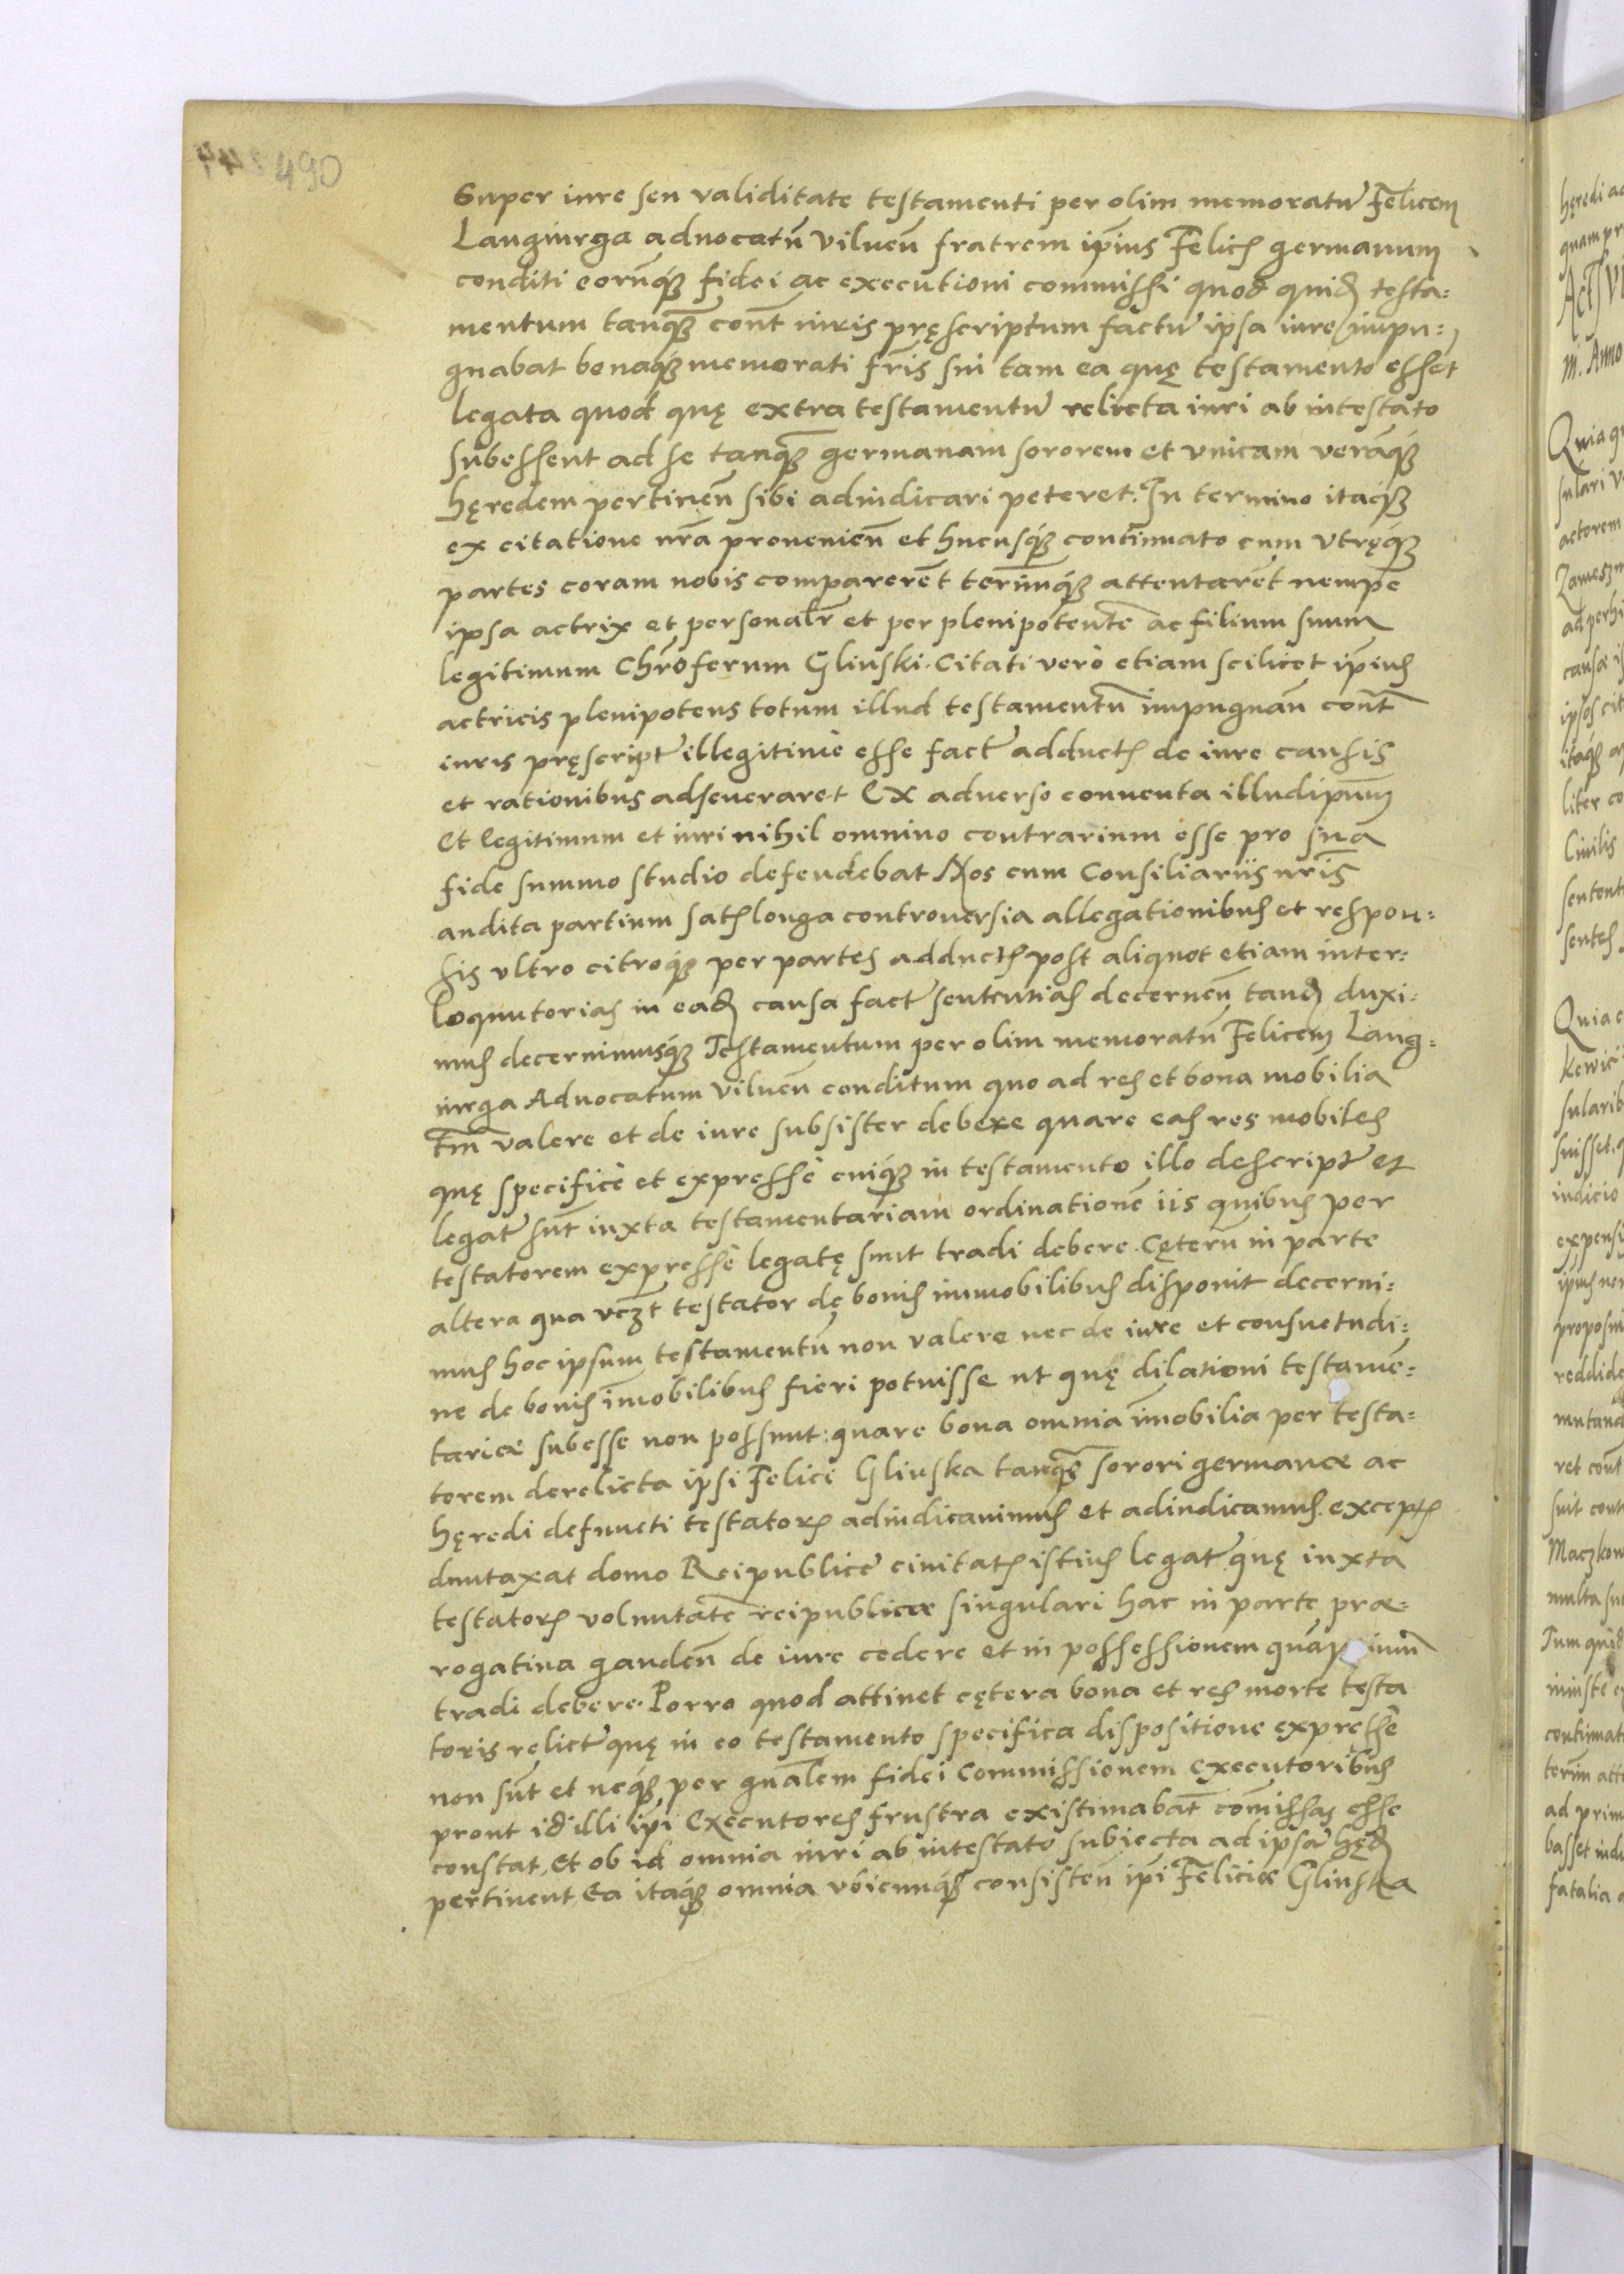 490
Super iure seu validitate testamenti per olim memoratū Felicem
Langiurga aduocatū Vilneñ fratrem ip̄ius Felicis germanum
conditi eorūq́ue fidei ac executioni commissi quod quidem testa=
mentum tanq̄ cont̄ iuris pręscriptum factū ipsa iure impu=
gnabat bonaq́ue memorati fr̄is sui tam ea quę testamento essēt
legata quod quę extra testamentū relicta iuri ab intestato
subessent ad se tanq̄ germanam sororem et vnicam verāq́ue
hęredem pertineñ sibi adiudicari peteret. In termino itaque
ex citatione nr̄a prouenieñ et hucusq́ue continuato cum vtręq́ue
partes coram nobis comparerēt term̄inq́ue attentarēt nempe
ipsa actrix et personalr̄ et per plenipotentē ac filium suum
legitimum Chr̄oferum Glinski. Citati vero etiam scilicet ip̄ius
actricis plenipotens totum illud testamentū impugnañ cont̄
iuris pręscript illegitime esse fact adductis de iure causis
et rationibus adseueraret Ex aduerso conuenta illud ip̄um
et legitimum et iuri nihil omnino contrarium esse pro sua
fide summo studio defendebat Nos cum Consiliariis nr̄is
audita partium satis longa controuersia allegationibus et respon=
sis vltro citroq́ue per partes adductis post aliquot etiam inter=
loquutorias in eadem causa fact sententias decerneñ tandem duxi=
mus decernimusq́ue Testamentum per olim memoratū Felicem Lang=
iurga Aduocatum Vilneñ conditum quo ad res et bona mobilia
tm̄ valere et de iure subsister debere quare eas res mobiles
quę specificè et expressè cuiq́ue in testamento illo descript et
legat sūt iuxta testamentariam ordinationē iis quibus per
testatorem expressè legatę sunt tradi debere. Cęterū in parte
altera qua vczt testator dę bonis immobilibus disponit decerni=
mus hoc ipsum testamentū non valere nec de iure et consuetudi=
ne de bonis im̄obilibus fieri potuisse ut quę dilationi testamē=
tariæ subesse non possunt: quare bona omnia im̄obilia per testa=
torem derelicta ipsi Felici Glinska tanq̄ sorori germanæ ac
hęredi defuncti testatoris adiudicauimus et adiudicamus. exceptis
duntaxat domo Reipublicę ciuitatis istius legat quę iuxta
testatoris voluntatē reipublicæ singulari hac in parte præ=
rogatiua gaudeñ de iure cedere et in possessionem quāp imū
tradi debere. Porro quod attinet cętera bona et res morte testa
toris relict quę in eo testamento specifica dispositione expresse
non sūt et neq́ue per gnālem fidei Commissionem executoribus
prout id illi ip̄i Executores frustra existimabāt com̄issas esse
constat, Et ob id omnia iuri ab intestato subiecta ad ipsā hęredem
pertinent, Ea itaq́ue omnia vbicunq́ue consisteñ ip̄i Feliciæ Glinska